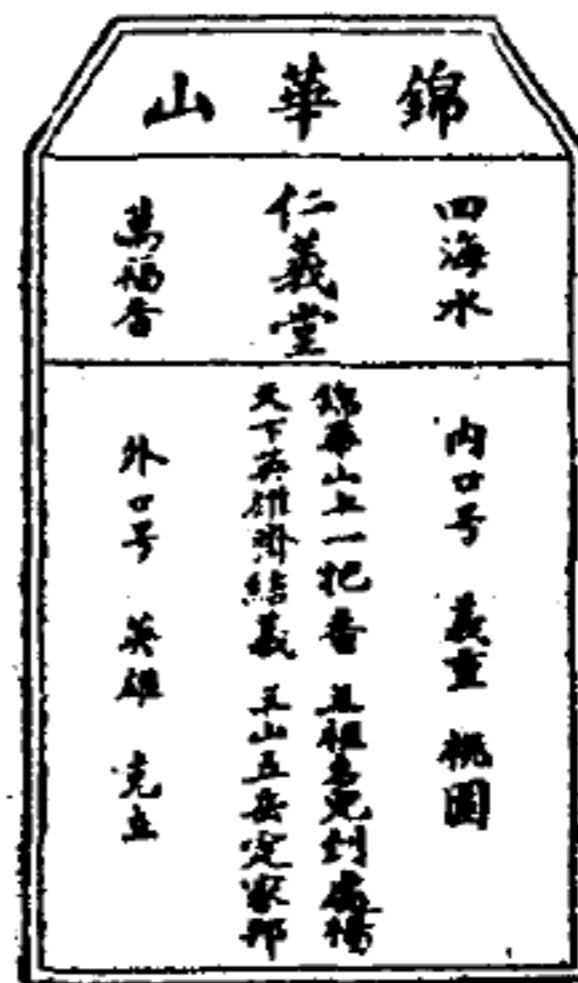 錦華山
四海水
仁義堂
萬福香
内口号 義重 桃園
錦華山上一把香 五祖名兒到處揚
天下英雄齊結義 三山五岳定家邦
外口号 英雄 克立